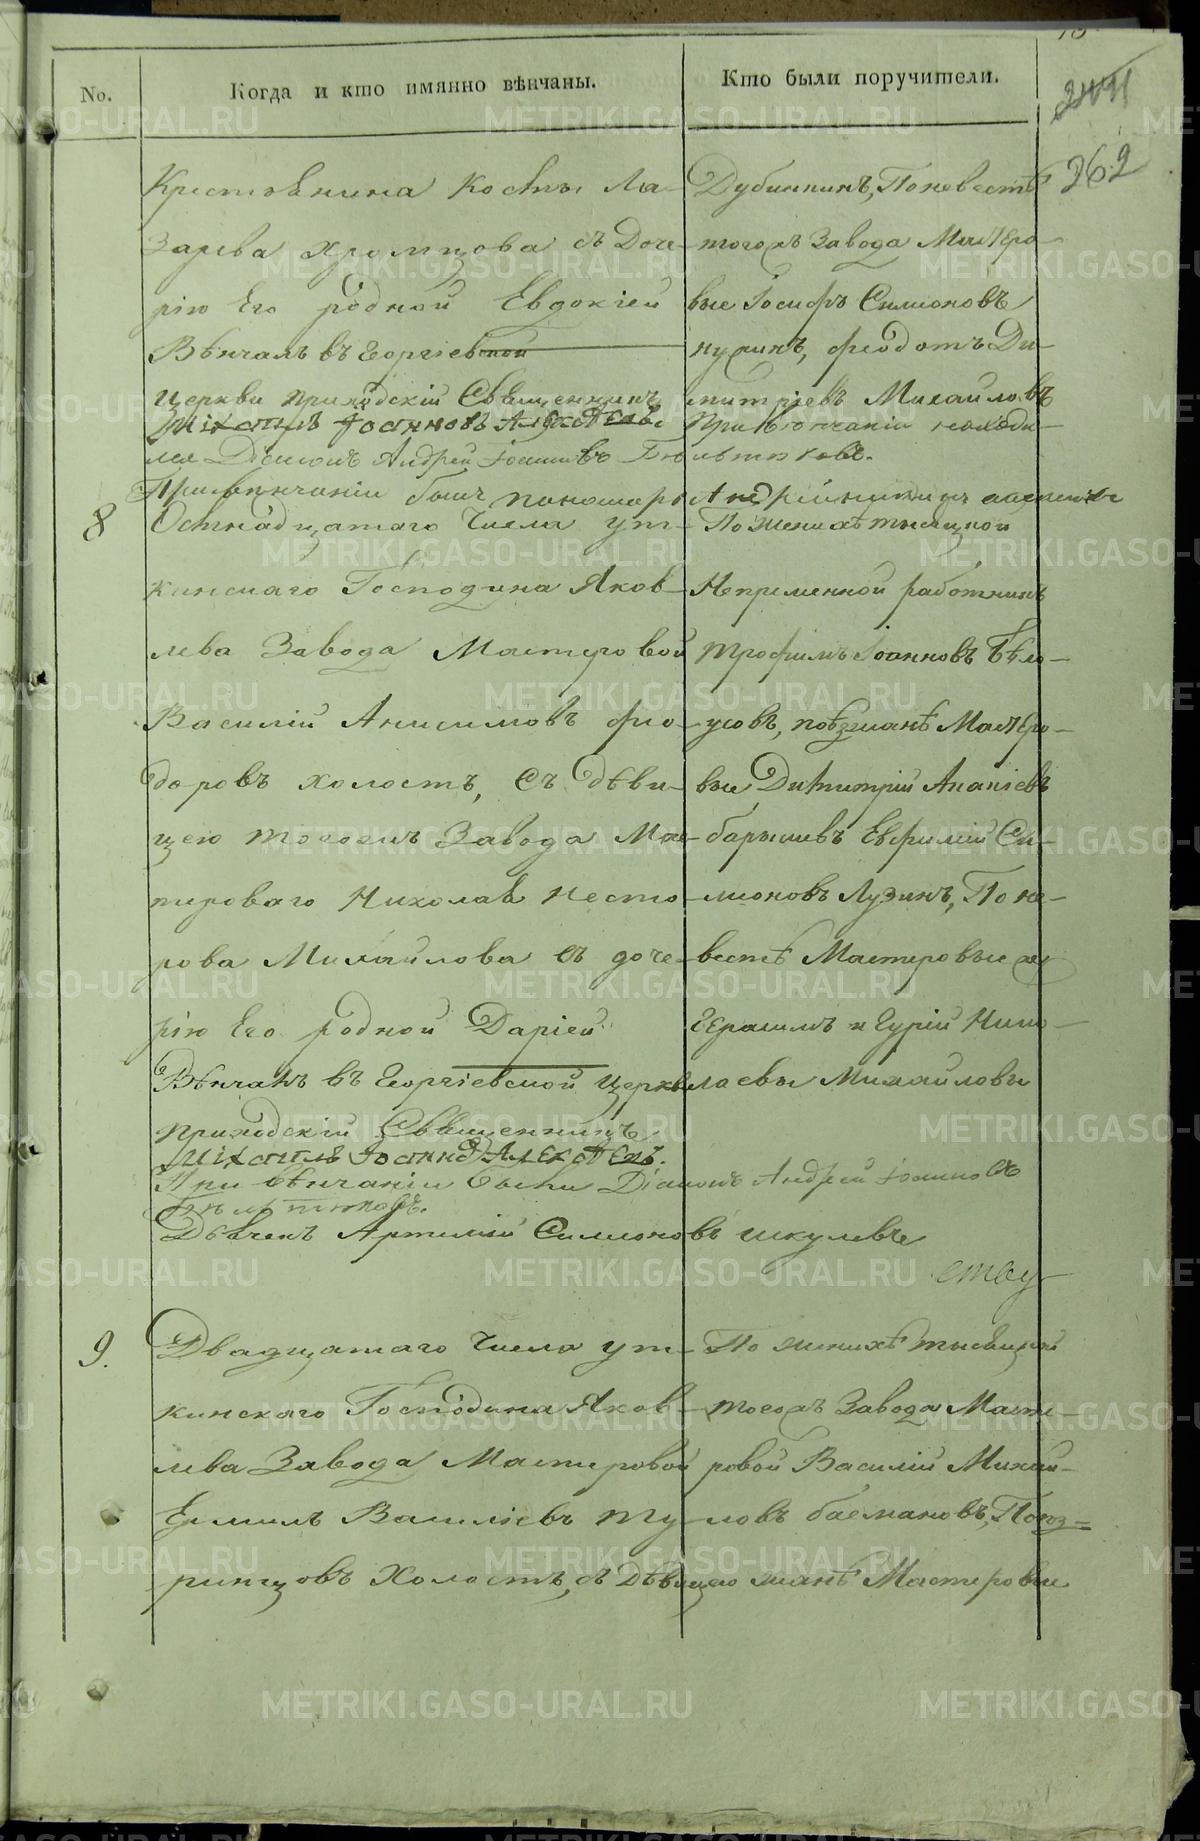 No.
Когда и кто имянно вѣнчаны.
Кто были поручители.
362
Крестьянина Косьмы Ла-
зарева Хромцова съ доче-
рію Его родной Евдокіей
Вѣнчалъ въ Георгіевской
Церкви приходскій Священникъ
Михаилъ Іоанновъ
Діаконъ Андрей Іоанновъ
Дубининъ, По невестѣ
тогожъ Завода Мастеро-
вые Іосифъ Симіоновъ
Ѳеодотъ Ди-
митріевъ Михайловъ
При венчаніи находи-
При венчаніи былъ пономарь
8
Осмнадцатаго Числа Ут-
кинскаго Господина Яков-
лева Завода Мастеровой
Василій Анисимовъ Фео-
доровъ холостъ, съ дѣви-
цею тогожъ Завода Мас-
тероваго Николая Несто-
рова Михайлова съ доче-
рію Его родной Даріей
Вѣнчалъ въ Георгіевской Церкви
приходскій Священникъ
Михаилъ
При вѣнчаніи были Діаконъ Андрей Іоанновъ
Дьячекъ Артемій Симионовъ Шкулевъ
По женихѣ тысяцкой
Непременной работникъ
Трофимъ Іоанновъ Бѣло-
усовъ, поѣзжанѣ Мастеро-
вые Димитрій Ананіевъ
барышевъ Евфимій Си-
мионовъ Лузинъ, По не-
вестѣ Мастеровые же
Герасимъ и Гурій Нико-
лаевы Михайловы
9.
Двадцатаго Числа Ут-
кинскаго Господина Яков-
лева Завода Мастеровой
Емилъ Василіевъ Ту-
ринцовъ Холостъ, съ Дѣвицею
По женихѣ тысяцкой
тогожъ Завода Масте-
ровой Василій Михай-
ловъ басмановъ, Поѣз-
жанѣ Мастеровые
METRIKI.GASO-URAL.RU